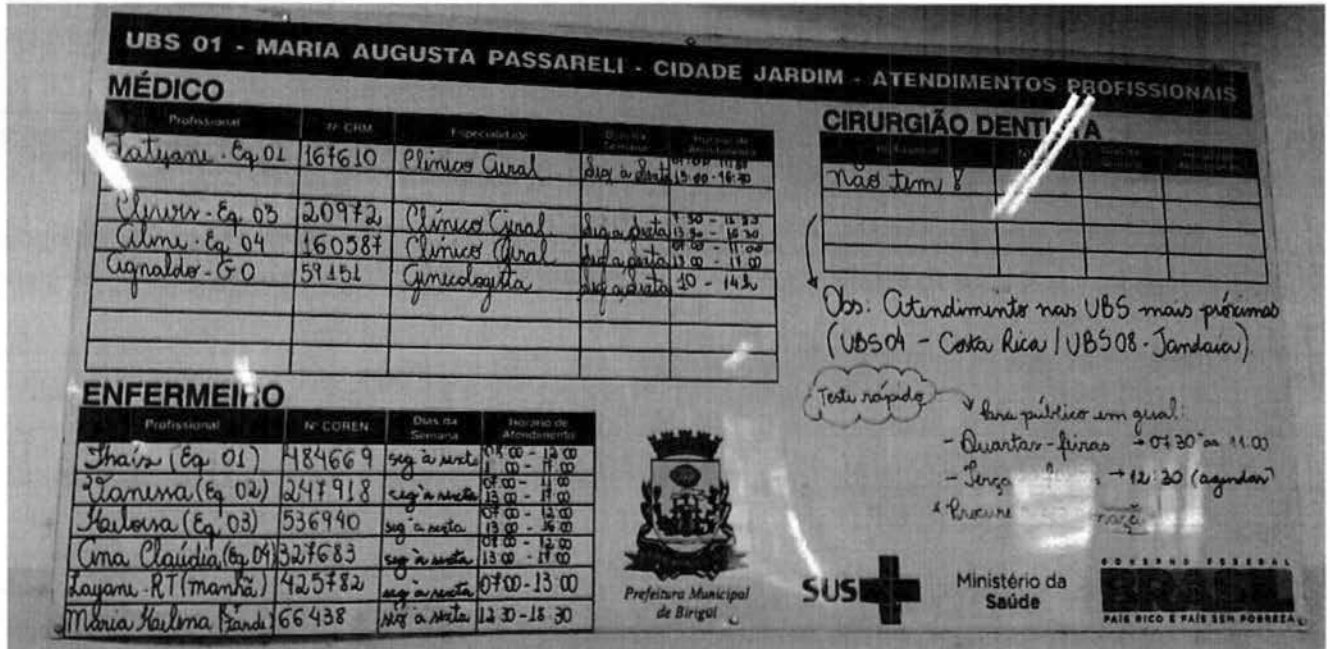 UBS 01 - MARIA AUGUSTA PASSARELI - CIDADE JARDIM - ATENDIMENTOS PROFISSIONAIS
MÉDICO
Profissional Nº CRM Especialidade Dias da Semana Horário de Atendimento
Tatyane - Eq 01 167610 Clínico Geral Seg à Sexta 13:00-16:30
Eq. 03 20972 Clínico Geral Seg a sexta 7:30 - 13:30 - 16:30
Aline - Eq 04 160587 Clínico Geral Seg a sexta 07:00 - 11:00 13:00 - 17:00
Agnaldo - GO 59151 Ginecologista Seg a sexta 10 - 14h
CIRURGIÃO DENTISTA
Não tem!
Obs: Atendimento nas UBS mais próximas
(UBS04 - Costa Rica / UBS08 - Jandaia).
Teste rápido
Para público em geral:
- Quartas-feiras → 07:30 às 11:00
- Terça → 12:30 (agendar)
* Procure
ENFERMEIRO
Profissional Nº COREN Dias da Semana Horário de Atendimento
Thaís (Eq. 01) 484669 seg à sexta 17:00
Vanessa (Eq 02) 247918 seg à sexta 07:00 - 11:00 13:00 - 17:00
Heloisa (Eq 03) 536940 seg à sexta 07:00 - 12:00 13:00 - 16:00
Ana Claúdia (Eq 04) 327683 seg à sexta 07:00 - 12:00 13:00 - 17:00
Layane - RT (manhã) 425782 seg à sexta 07:00-13:00
Maria Helena (Tarde) 66438 seg à sexta 12:30-18:30
Prefeitura Municipal
de Birigüi
SUS
Ministério da
Saúde
GOVERNO FEDERAL
BRASIL
PAÍS RICO É PAÍS SEM POBREZA